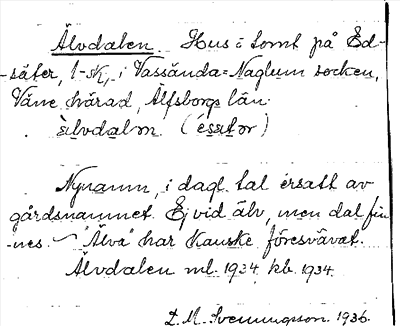 Älvdalen. Hus å tomt på Ed-
-säter, 1-sk., i Vassända=Naglum socken,
Väne härad, Älfsborgs län.
älvdalən (esätər)
Nynamn, i dagl. tal ersatt av
gårdsnamnet. Ej vid älv, men dal fin-
-nes. "Älva" har kanske föresvävat.
Älvdalen ml. 1934, kb. 1934.
L. M. Svenningsson. 1936.